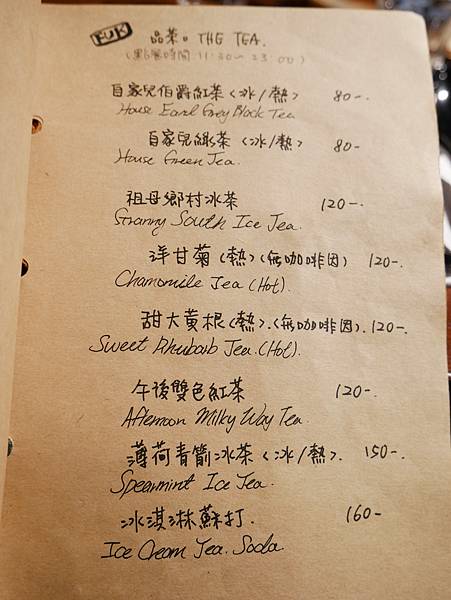 FUK 品茶。THE TEA.
(點餐時間 11:30~23:00)
自家兒伯爵紅茶<冰/熱> 80-.
House Earl Grey Black Tea
自家兒綠茶<冰/熱> 80-
House Green Tea.
祖母鄉村冰茶 120-.
Granny South Ice Tea.
洋甘菊(熱)(無咖啡因) 120-.
Chamomile Tea (Hot).
甜大黃根(熱).(無咖啡因). 120-.
Sweet Rhubarb Tea. (Hot).
午後雙色紅茶 120-.
Afternoon Milky Way Tea
薄荷青箭冰茶<冰/熱>. 150-.
Spearmint Ice Tea.
冰淇淋蘇打. 160-
Ice Cream Tea. Soda.